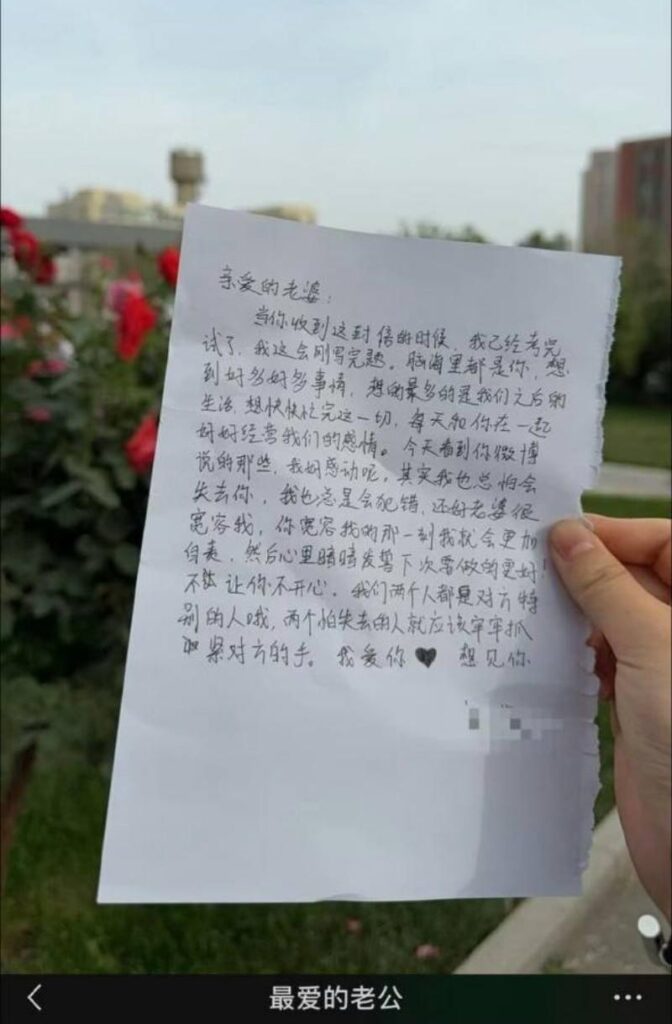 亲爱的老婆：
当你收到这封信的时候，我已经考完
试了，我这会刚写完题。脑海里都是你，想
到好多好多事情，想的最多的是我们之后的
生活，想快快忙完这一切，每天和你在一起
好好经营我们的感情。今天看到你微博
说的那些，我好感动呢，其实我也总怕会
失去你，我也总是会犯错，还好老婆很
宽容我，你宽容我的那一刻我就会更加
自责，然后心里暗暗发誓下次要做的更好！
不 让你不开心。我们两个人都是对方特
别的人哦，两个怕失去的人就应该牢牢抓
紧对方的手。我爱你♥ 想见你
最爱的老公